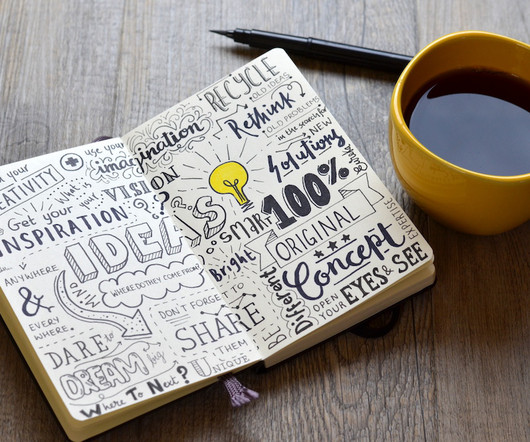 YOUR
CREATIVITY
+ use your
imagination
What is
your
VISION
?
Get your
INSPIRATION
IDEAS
ANYWHERE
&
EVERY
WHERE
MIND
WHERE DO THEY COME FROM?
DON'T FORGET TO
SHARE
THEM
DARE to
DREAM big
U
UNIQUE
Where To Next?
RECYCLE
OLD IDEAS
Rethink
OLD PROBLEMS
in the search for
NEW
Solutions
SMART
Bright
100%
ORIGINAL
Concept
BE
Different
OPEN
YOUR
EYES & SEE
EXPERTISE